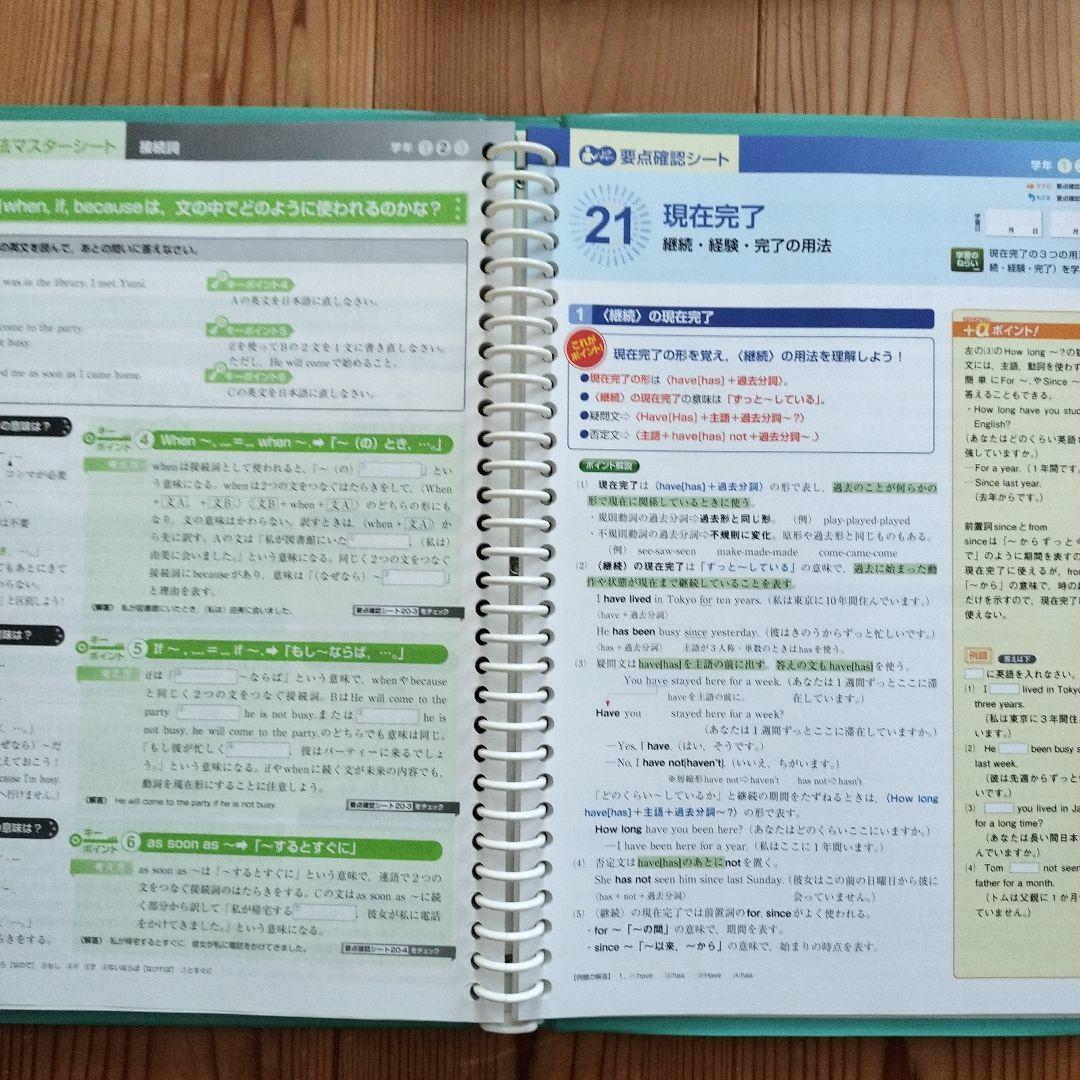 法マスターシート
接続詞
学年 1 2 3
when, if, becauseは，文の中でどのように使われるのかな？
の英文を読んで，あとの問いに答えなさい。
was in the library, I met Yumi.
キーポイント4
Aの英文を日本語に直しなさい。
come to the party.
busy.
キーポイント5
ifを使ってBの2文を1文に書き直しなさい。
ただし，He will comeで始めること。
ed me as soon as I came home.
キーポイント6
Cの英文を日本語に直しなさい。
の意味は？
コンマが必要
は不要
意味は？
の意味は？
キーポイント 4 When ～, … = … when ～.➡「～（の）とき，…。」
考え方
whenは接続詞として使われると，「～（の）① 」とい
う意味になる。whenは2つの文をつなぐはたらきをして，〈When
＋文A，＋文B〉〈文B＋when＋文A〉のどちらの形にも
なり，文の意味はかわらない。訳すときは，〈when＋文A〉か
ら先に訳す。Aの文は「私が図書館にいた ，（私は）
由美に会いました。」という意味になる。同じく2つの文をつなぐ
接続詞にbecauseがあり，意味は「（なぜなら）～
と理由を表す。
〈解答〉 私が図書館にいたとき，（私は）由美に会いました。
要点確認シート20-3 をチェック
キーポイント 5 If ～, … = … if ～.➡「もし～ならば，…。」
考え方
ifは「 ～ならば」という意味で，whenやbecause
と同じく2つの文をつなぐ接続詞。BはHe will come to the
party he is not busy.または he is
not busy, he will come to the party.のどちらでも意味は同じ。
「もし彼が忙しく ，彼はパーティーに来るでしょ
う。」という意味になる。ifやwhenに続く文が未来の内容でも，
動詞を現在形にすることに注意しよう。
〈解答〉 He will come to the party if he is not busy.
要点確認シート20-3 をチェック
キーポイント 6 as soon as ～➡「～するとすぐに」
考え方
as soon as ～は「～するとすぐに」という意味で，連語で2つの
文をつなぐ接続詞のはたらきをする。Cの文はas soon as ～に続
く部分から訳して「私が帰宅する ，彼女が私に電話
をかけてきました。」という意味になる。
〈解答〉 私が帰宅するとすぐに 彼女が私に電話をかけてきました。
要点確認シート20-4 をチェック
要点確認シート
学年 1
21 現在完了
継続・経験・完了の用法
学習日 月 日
月
学習のねらい
現在完了の3つの用法
続・経験・完了）を学
1 〈継続〉の現在完了
これがポイント！
現在完了の形を覚え，〈継続〉の用法を理解しよう！
●現在完了の形は〈have[has]＋過去分詞〉。
●〈継続〉の現在完了の意味は「ずっと～している」。
●疑問文⇨〈Have[Has]＋主語＋過去分詞～?〉
●否定文⇨〈主語＋have[has] not＋過去分詞～.〉
ポイント解説
(1) 現在完了は〈have[has]＋過去分詞〉の形で表し，過去のことが何らかの
形で現在に関係しているときに使う。
・規則動詞の過去分詞⇨過去形と同じ形。（例） play-played-played
・不規則動詞の過去分詞⇨不規則に変化。原形や過去形と同じものもある。
（例） see-saw-seen make-made-made come-came-come
(2) 〈継続〉の現在完了は「ずっと～している」の意味で，過去に始まった動
作や状態が現在まで継続していることを表す。
I have lived in Tokyo for ten years.（私は東京に10年間住んでいます。）
〈have＋過去分詞〉
He has been busy since yesterday.（彼はきのうからずっと忙しいです。）
〈has＋過去分詞〉 主語が3人称・単数のときはhasを使う。
(3) 疑問文はhave[has]を主語の前に出す。答えの文もhave[has]を使う。
You have stayed here for a week.（あなたは1週間ずっとここに滞
haveを主語の前に。 在しています。）
Have you stayed here for a week?
（あなたは1週間ずっとここに滞在していますか。）
—Yes, I have.（はい，そうです。）
—No, I have not[haven't].（いいえ，ちがいます。）
※短縮形have not⇨haven't has not⇨hasn't
「どのくらい～しているか」と継続の期間をたずねるときは，〈How long
have[has]＋主語＋過去分詞～?〉の形で表す。
How long have you been here?（あなたはどのくらいここにいますか。）
—I have been here for a year.（私はここに1年間います。）
(4) 否定文はhave[has]のあとにnotを置く。
She has not seen him since last Sunday.（彼女はこの前の日曜日から彼に
〈has＋not＋過去分詞〉 会っていません。）
(5) 〈継続〉の現在完了では前置詞のfor, sinceがよく使われる。
・for ～「～の間」の意味で，期間を表す。
・since ～「～以来，～から」の意味で，始まりの時点を表す。
【例題の解答】 1．(1)have (2)has (3)Have (4)has
+αポイント！
左の(3)のHow long ～?の疑
文には，主語，動詞を使わず
簡単にFor ～.やSince ～
答えることもできる。
・How long have you stu
English?
（あなたはどのくらい英語を
強していますか。）
—For a year.（1年間です。
—Since last year.
（去年からです。）
前置詞sinceとfrom
sinceは「～からずっと今
で」のように期間を表すの
現在完了に使えるが，from
「～から」の意味で，時の起
だけを示すので，現在完了に
使えない。
例題 答えは下
に英語を入れなさい。
(1) I lived in Tokyo
three years.
（私は東京に3年間住
います。）
(2) He been busy s
last week.
（彼は先週からずっと
いです。）
(3) you lived in Ja
for a long time?
（あなたは長い間日本
んでいますか。）
(4) Tom not seen
father for a month.
（トムは父親に1か月
ていません。）